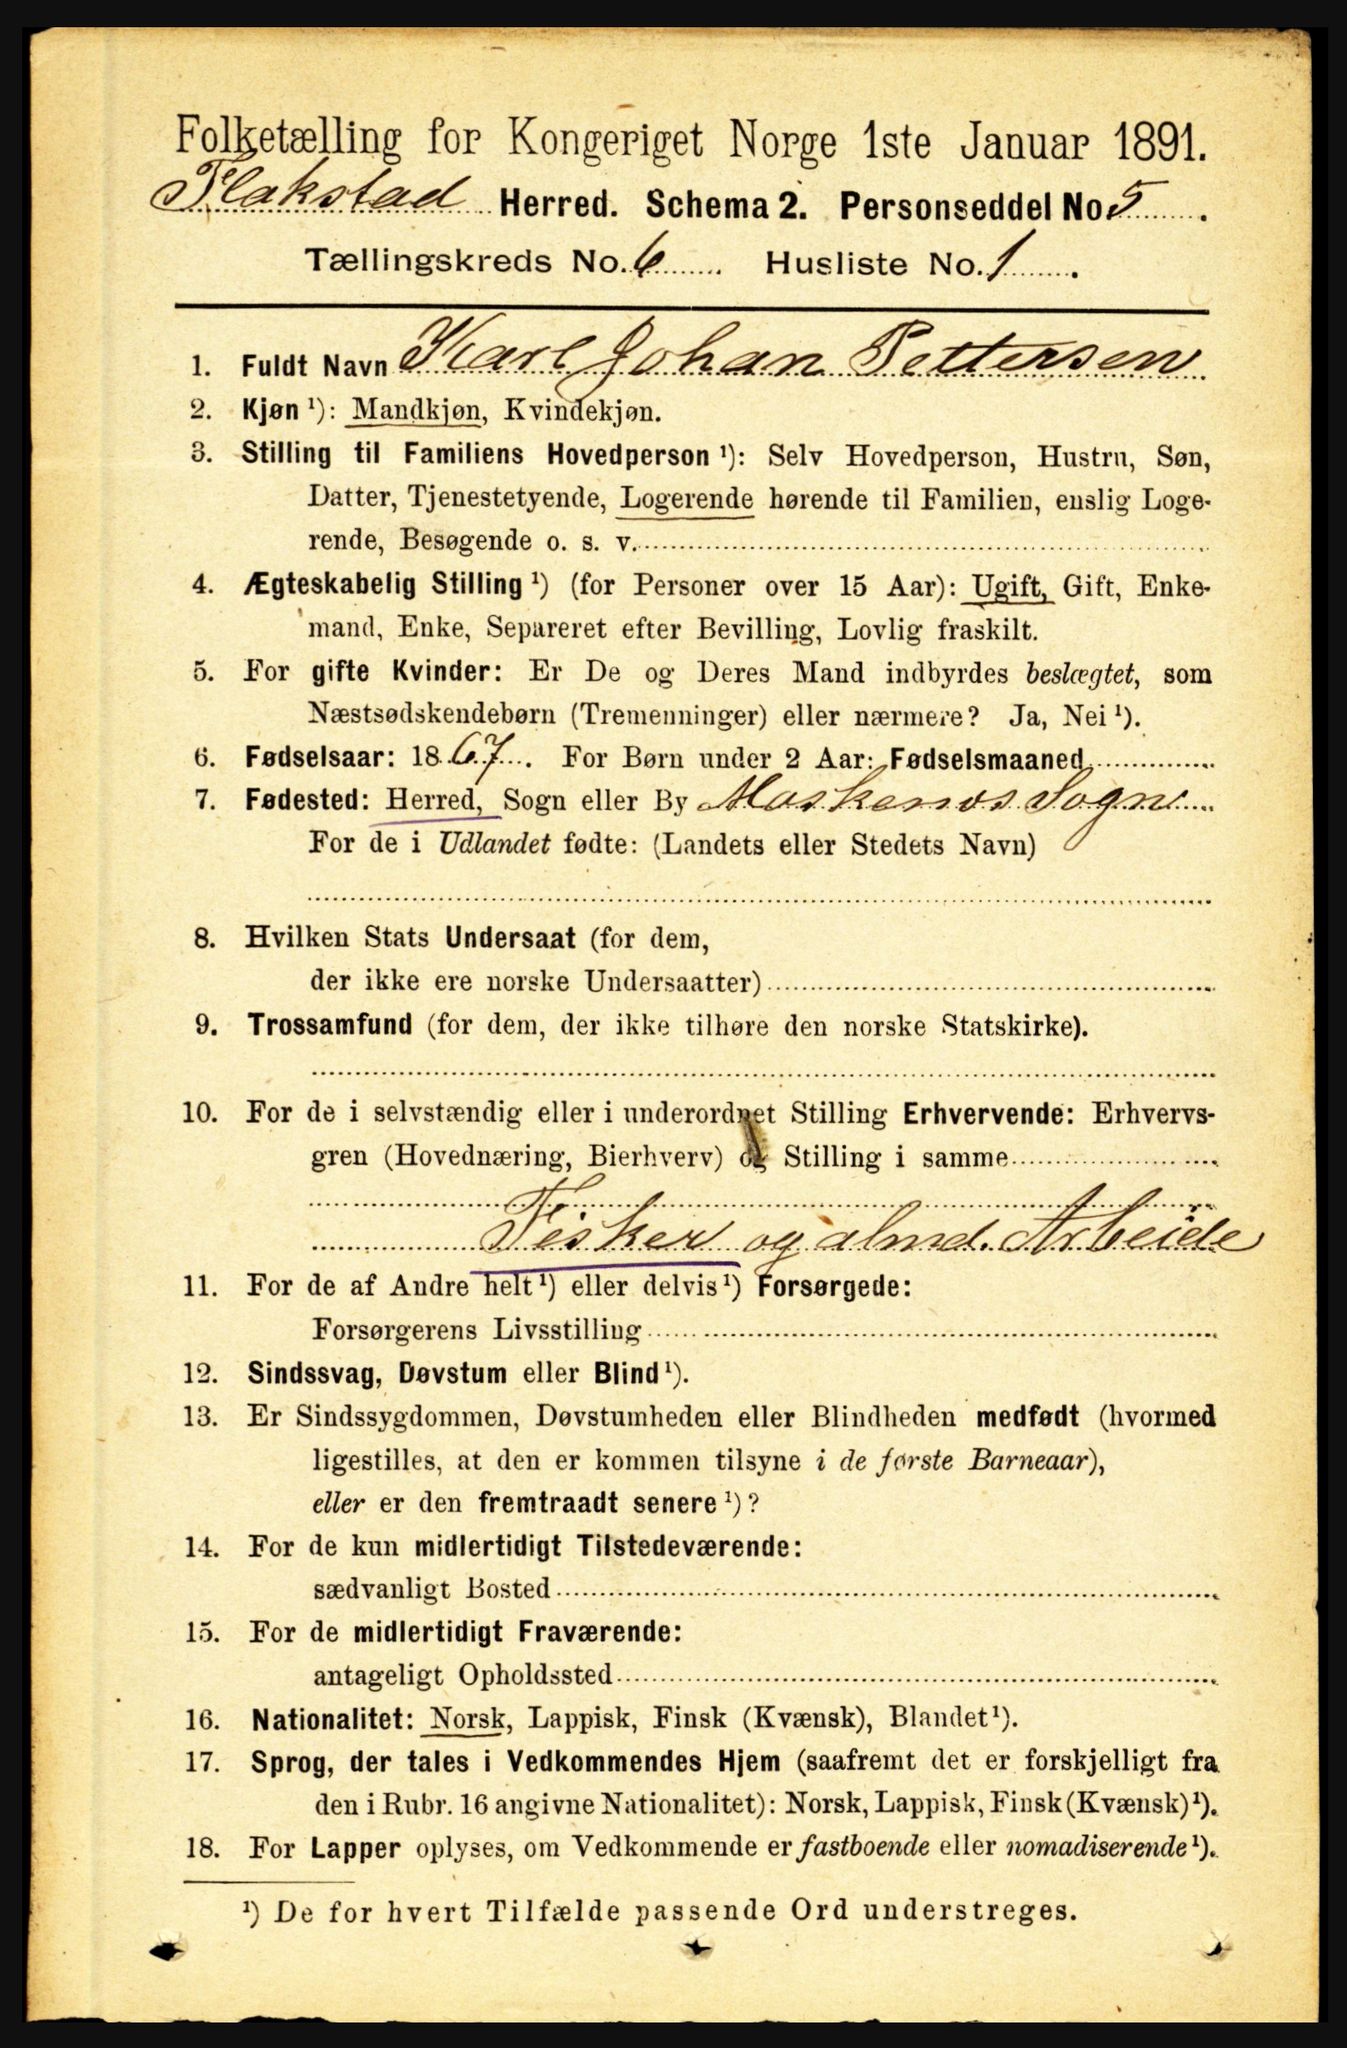 Folketælling for Kongeriget Norge 1ste Januar 1891.
Flakstad Herred. Schema 2. Personseddel No 5.
Tællingskreds No. 6. Husliste No. 1.
1. Fuldt Navn Karl Johan Pettersen
2. Kjøn ¹): Mandkjøn, Kvindekjøn.
3. Stilling til Familiens Hovedperson ¹): Selv Hovedperson, Hustru, Søn,
Datter, Tjenestetyende, Logerende hørende til Familien, enslig Loge-
rende, Besøgende o. s. v.
4. Ægteskabelig Stilling ¹) (for Personer over 15 Aar): Ugift, Gift, Enke-
mand, Enke, Separeret efter Bevilling, Lovlig fraskilt.
5. For gifte Kvinder: Er De og Deres Mand indbyrdes beslægtet, som
Næstsødskendebørn (Tremenninger) eller nærmere? Ja, Nei ¹).
6. Fødselsaar: 1867. For Børn under 2 Aar: Fødselsmaaned
7. Fødested: Herred, Sogn eller By Moskenes Sogn
For de i Udlandet fødte: (Landets eller Stedets Navn)
8. Hvilken Stats Undersaat (for dem,
der ikke ere norske Undersaatter)
9. Trossamfund (for dem, der ikke tilhøre den norske Statskirke).
10. For de i selvstændig eller i underordnet Stilling Erhvervende: Erhvervs-
gren (Hovednæring, Bierhverv) og Stilling i samme
Fisker og almd. Arbeide
11. For de af Andre helt ¹) eller delvis ¹) Forsørgede:
Forsørgerens Livsstilling
12. Sindssvag, Døvstum eller Blind ¹).
13. Er Sindssygdommen, Døvstumheden eller Blindheden medfødt (hvormed
ligestilles, at den er kommen tilsyne i de første Barneaar),
eller er den fremtraadt senere ¹)?
14. For de kun midlertidigt Tilstedeværende:
sædvanligt Bosted
15. For de midlertidigt Fraværende:
antageligt Opholdssted
16. Nationalitet: Norsk, Lappisk, Finsk (Kvænsk), Blandet ¹).
17. Sprog, der tales i Vedkommendes Hjem (saafremt det er forskjelligt fra
den i Rubr. 16 angivne Nationalitet): Norsk, Lappisk, Finsk (Kvænsk) ¹).
18. For Lapper oplyses, om Vedkommende er fastboende eller nomadiserende ¹).
¹) De for hvert Tilfælde passende Ord understreges.